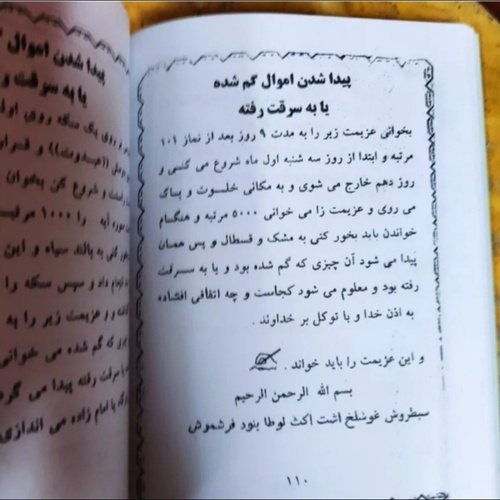 پیدا شدن اموال گم شده
یا به سرقت رفته
بخوانی عزیمت زیر را به مدت ۹ روز بعد از نماز ۱۰۱
مرتبه و ابتدا از روز سه شنبه اول ماه شروع می کنی و
روز دهم خارج می شوی و به مکانی خلوت و پاک
می روی و عزیمت را می خوانی ۵۰۰۰ مرتبه و هنگام
خواندن باید بخور کنی به مشک و قسطال و پس همان
پیدا می شود آن چیزی که گم شده بود و یا به سرقت
رفته بود و معلوم می شود کجاست و چه اتفاقی افتاده
به اذن خدا و با توکل بر خداوند .
و این عزیمت را باید خواند .
بسم الله الرحمن الرحیم
سیطروش غوشلخ اشت اکث لوطا بنود فرشموش
۱۱۰
پیدا شدن اموال گ
یا به سرقت و
و روی یک سکه روی اول
و شروع کن بخوان
را ۱۰۰۰ مرتبه
سیاه و این
و سپس سکه را
و عزیمت زیر را به
که گم شده می خوانی
سرقت رفته پیدا می گر
یا امام زاده می اندازی